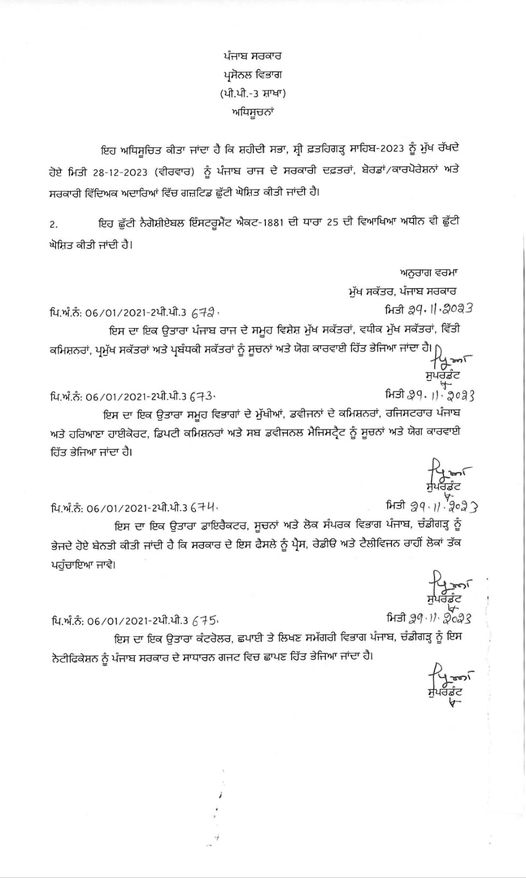 ਪੰਜਾਬ ਸਰਕਾਰ
ਪ੍ਰਸੋਨਲ ਵਿਭਾਗ
(ਪੀ.ਪੀ.-3 ਸ਼ਾਖਾ)
ਅਧਿਸੂਚਨਾਂ
ਇਹ ਅਧਿਸੂਚਿਤ ਕੀਤਾ ਜਾਂਦਾ ਹੈ ਕਿ ਸ਼ਹੀਦੀ ਸਭਾ, ਸ਼੍ਰੀ ਫ਼ਤਹਿਗੜ੍ਹ ਸਾਹਿਬ-2023 ਨੂੰ ਮੁੱਖ ਰੱਖਦੇ
ਹੋਏ ਮਿਤੀ 28-12-2023 (ਵੀਰਵਾਰ) ਨੂੰ ਪੰਜਾਬ ਰਾਜ ਦੇ ਸਰਕਾਰੀ ਦਫ਼ਤਰਾਂ, ਬੋਰਡਾਂ/ਕਾਰਪੋਰੇਸ਼ਨਾਂ ਅਤੇ
ਸਰਕਾਰੀ ਵਿੱਦਿਅਕ ਅਦਾਰਿਆਂ ਵਿੱਚ ਗਜ਼ਟਿਡ ਛੁੱਟੀ ਘੋਸ਼ਿਤ ਕੀਤੀ ਜਾਂਦੀ ਹੈ।
2. ਇਹ ਛੁੱਟੀ ਨੈਗੋਸ਼ੀਏਬਲ ਇੰਸਟਰੂਮੈਂਟ ਐਕਟ-1881 ਦੀ ਧਾਰਾ 25 ਦੀ ਵਿਆਖਿਆ ਅਧੀਨ ਵੀ ਛੁੱਟੀ
ਘੋਸ਼ਿਤ ਕੀਤੀ ਜਾਂਦੀ ਹੈ।
ਅਨੁਰਾਗ ਵਰਮਾ
ਮੁੱਖ ਸਕੱਤਰ, ਪੰਜਾਬ ਸਰਕਾਰ
ਪਿ.ਅੰ.ਨੰ: 06/01/2021-2ਪੀ.ਪੀ.3 672. ਮਿਤੀ 29.11.2023
ਇਸ ਦਾ ਇਕ ਉਤਾਰਾ ਪੰਜਾਬ ਰਾਜ ਦੇ ਸਮੂਹ ਵਿਸ਼ੇਸ਼ ਮੁੱਖ ਸਕੱਤਰਾਂ, ਵਧੀਕ ਮੁੱਖ ਸਕੱਤਰਾਂ, ਵਿੱਤੀ
ਕਮਿਸ਼ਨਰਾਂ, ਪ੍ਰਮੁੱਖ ਸਕੱਤਰਾਂ ਅਤੇ ਪ੍ਰਬੰਧਕੀ ਸਕੱਤਰਾਂ ਨੂੰ ਸੂਚਨਾਂ ਅਤੇ ਯੋਗ ਕਾਰਵਾਈ ਹਿੱਤ ਭੇਜਿਆ ਜਾਂਦਾ ਹੈ।
ਸੁਪਰਡੰਟ
ਪਿ.ਅੰ.ਨੰ: 06/01/2021-2ਪੀ.ਪੀ.3 673. ਮਿਤੀ 29.11.2023
ਇਸ ਦਾ ਇਕ ਉਤਾਰਾ ਸਮੂਹ ਵਿਭਾਗਾਂ ਦੇ ਮੁੱਖੀਆਂ, ਡਵੀਜਨਾਂ ਦੇ ਕਮਿਸ਼ਨਰਾਂ, ਰਜਿਸਟਰਾਰ ਪੰਜਾਬ
ਅਤੇ ਹਰਿਆਣਾ ਹਾਈਕੋਰਟ, ਡਿਪਟੀ ਕਮਿਸ਼ਨਰਾਂ ਅਤੇ ਸਬ ਡਵੀਜਨਲ ਮੈਜਿਸਟ੍ਰੇਟ ਨੂੰ ਸੂਚਨਾਂ ਅਤੇ ਯੋਗ ਕਾਰਵਾਈ
ਹਿੱਤ ਭੇਜਿਆ ਜਾਂਦਾ ਹੈ।
ਸੁਪਰਡੰਟ
ਪਿ.ਅੰ.ਨੰ: 06/01/2021-2ਪੀ.ਪੀ.3 674. ਮਿਤੀ 29.11.2023
ਇਸ ਦਾ ਇਕ ਉਤਾਰਾ ਡਾਇਰੈਕਟਰ, ਸੂਚਨਾਂ ਅਤੇ ਲੋਕ ਸੰਪਰਕ ਵਿਭਾਗ ਪੰਜਾਬ, ਚੰਡੀਗੜ੍ਹ ਨੂੰ
ਭੇਜਦੇ ਹੋਏ ਬੇਨਤੀ ਕੀਤੀ ਜਾਂਦੀ ਹੈ ਕਿ ਸਰਕਾਰ ਦੇ ਇਸ ਫੈਸਲੇ ਨੂੰ ਪ੍ਰੈਸ, ਰੇਡੀਓ ਅਤੇ ਟੈਲੀਵਿਜਨ ਰਾਹੀਂ ਲੋਕਾਂ ਤੱਕ
ਪਹੁੰਚਾਇਆ ਜਾਵੇ।
ਸੁਪਰਡੰਟ
ਪਿ.ਅੰ.ਨੰ: 06/01/2021-2ਪੀ.ਪੀ.3 675. ਮਿਤੀ 29.11.2023
ਇਸ ਦਾ ਇਕ ਉਤਾਰਾ ਕੰਟਰੋਲਰ, ਛਪਾਈ ਤੇ ਲਿਖਣ ਸਮੱਗਰੀ ਵਿਭਾਗ ਪੰਜਾਬ, ਚੰਡੀਗੜ੍ਹ ਨੂੰ ਇਸ
ਨੋਟੀਫਿਕੇਸ਼ਨ ਨੂੰ ਪੰਜਾਬ ਸਰਕਾਰ ਦੇ ਸਾਧਾਰਨ ਗਜਟ ਵਿਚ ਛਾਪਣ ਹਿੱਤ ਭੇਜਿਆ ਜਾਂਦਾ ਹੈ।
ਸੁਪਰਡੰਟ